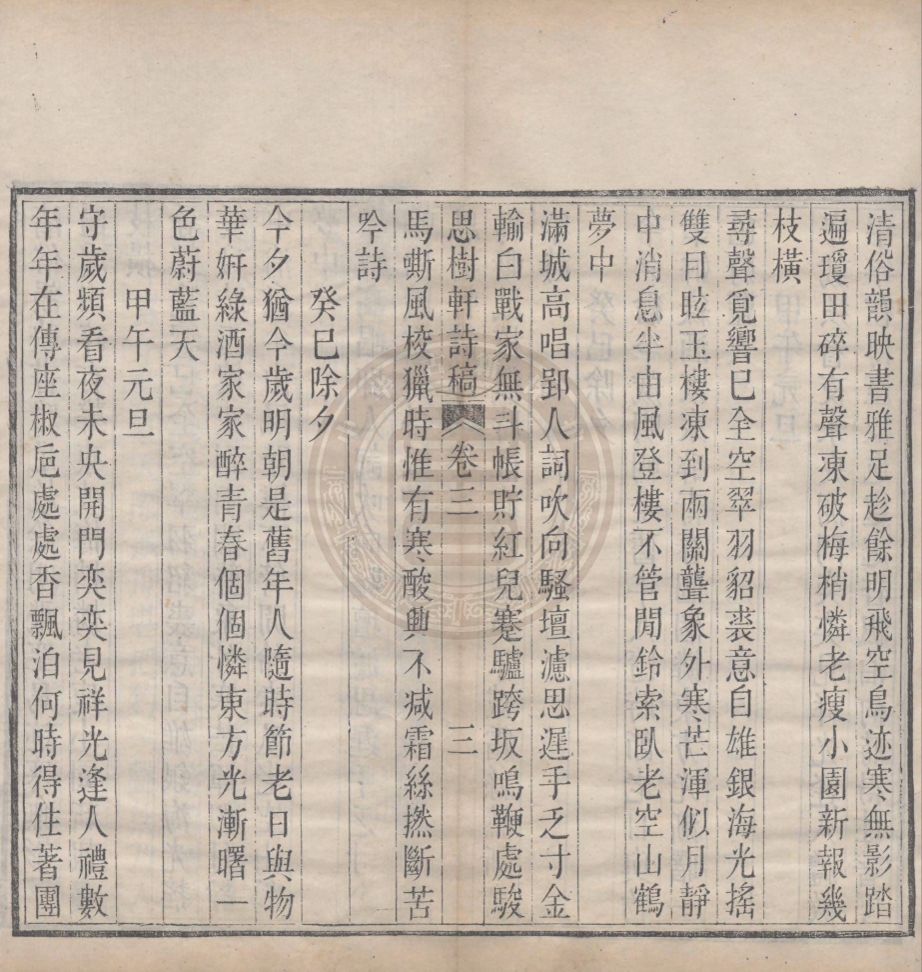 清俗韻映書雅足趁餘明飛空鳥迹寒無影踏
遍瓊田碎有聲凍破梅梢憐老瘦小園新報幾
枝橫
尋聲覓響巳全空翠羽貂裘意自雄銀海光搖
雙目眩玉樓凍到兩關聾象外寒芒渾似月靜
中消息半由風登樓不管閒鈴索臥老空山鶴
夢中
滿城高唱郢人詞吹向騷壇濾思遲手乏寸金
輸白戰家無斗帳貯紅兒蹇驢跨坂鳴鞭處駿
思樹軒詩稿 卷三 三
馬嘶風校獵時惟有寒酸興不减霜絲撚斷苦
吟詩
癸巳除夕
今夕猶今歲明朝是舊年人隨時節老日與物
華妍綠酒家家醉青春個個憐東方光漸曙一
色蔚藍天
甲午元旦
守歲頻看夜未央開門奕奕見祥光逢人禮數
年年在傳座椒巵處處香飄泊何時得住著團